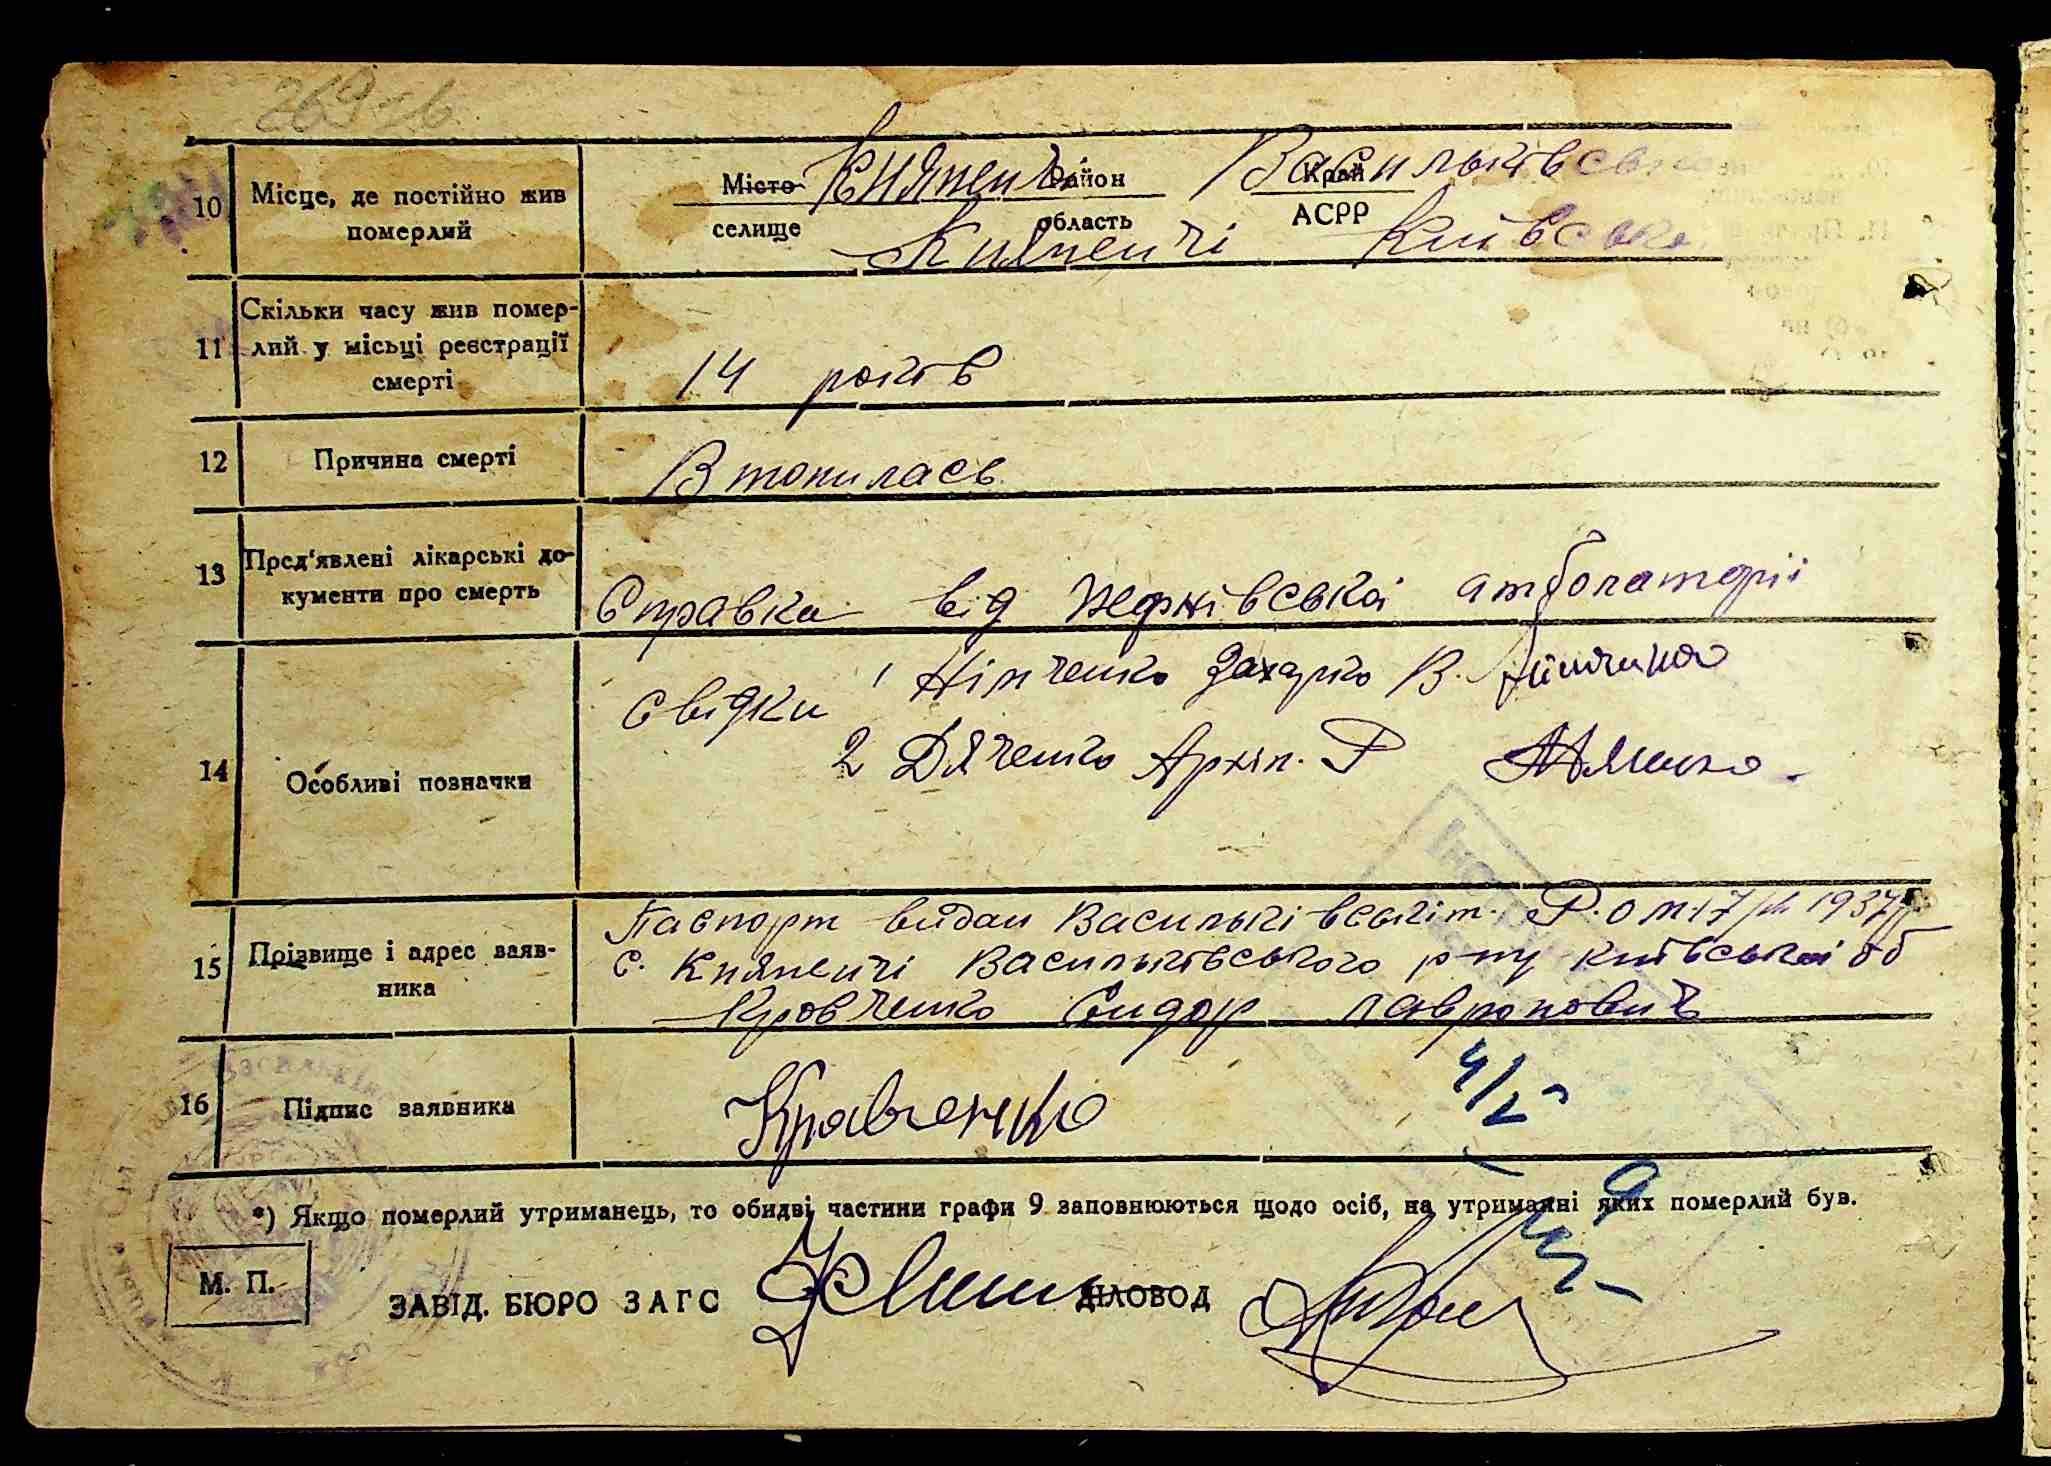 269 зв
10 Місце, де постійно жив померлий
Місто селище Район область Край АСРР
Княжичі Васильківсько
Княжичі Київська
11 Скільки часу жив померлий у місьці реєстрації смерті
14 років
12 Причина смерті
Втопилась
13 Пред'явлені лікарські документи про смерть
Справка від амболаторіі
14 Особливі позначки
Свідки 1 Німченко Захарко В.
2 Дяченко Архип. Р
15 Прізвище і адрес заявника
Паспорт видан Васильківськім. Р. о м. 17/ 1937р
с. Княжичі Васильківського р-ну київської об
Кровченко Сидор
16 Підпис заявника
Кравченко
4/V
*) Якщо померлий утриманець, то обидві частини графи 9 заповнюються щодо осіб, на утриманні яких померлий був.
М. П.
ЗАВІД. БЮРО ЗАГС ДІЛОВОД